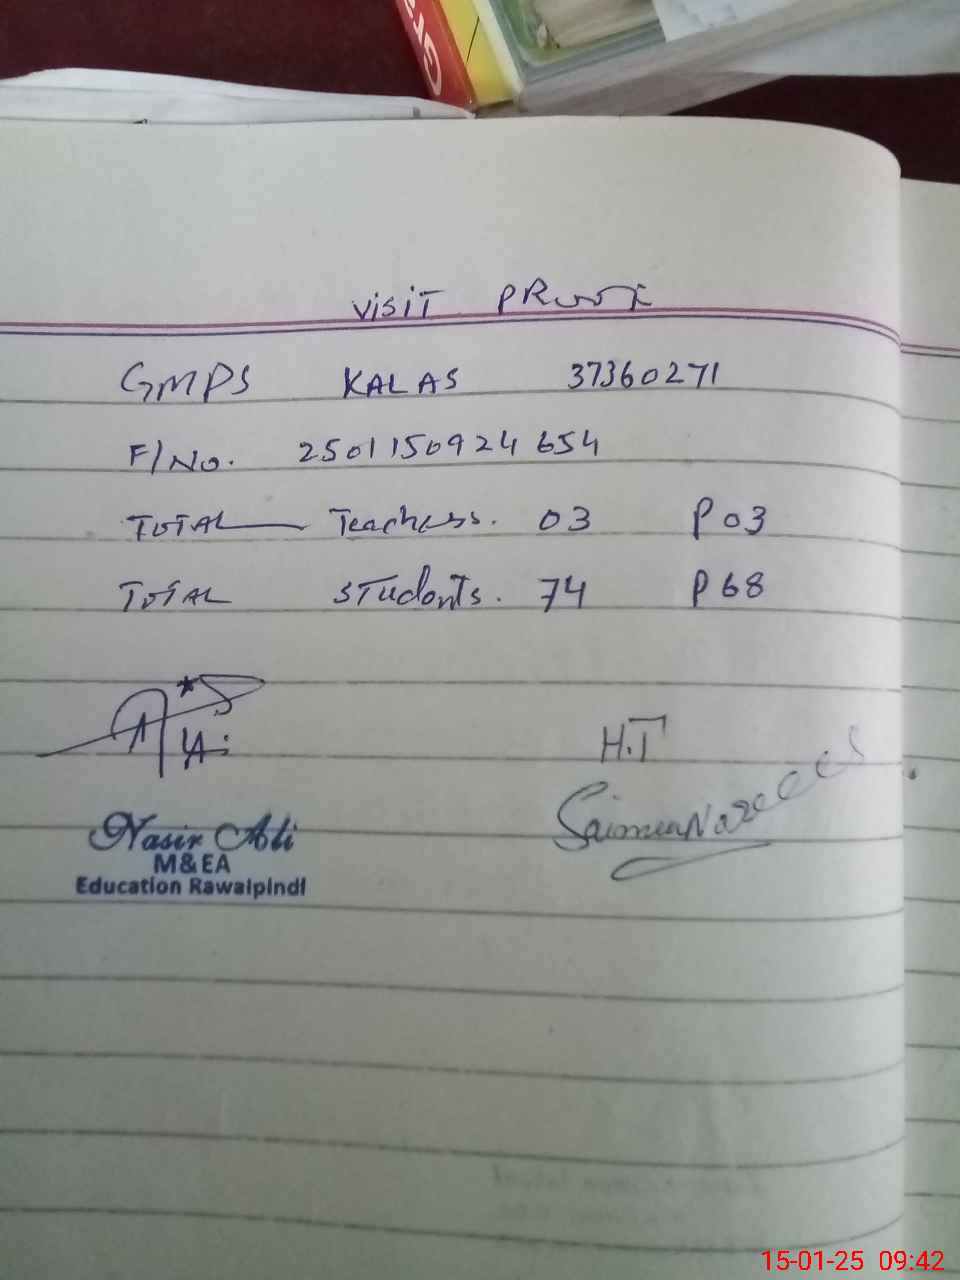 VISIT PROOF
GMPS KALAS 37360271
F/No. 2501150924654
TOTAL Teachers. 03 P 03
TOTAL Students. 74 P 68
H.T
Nasir Ali
M&EA
Education Rawalpindi
15-01-25 09:42